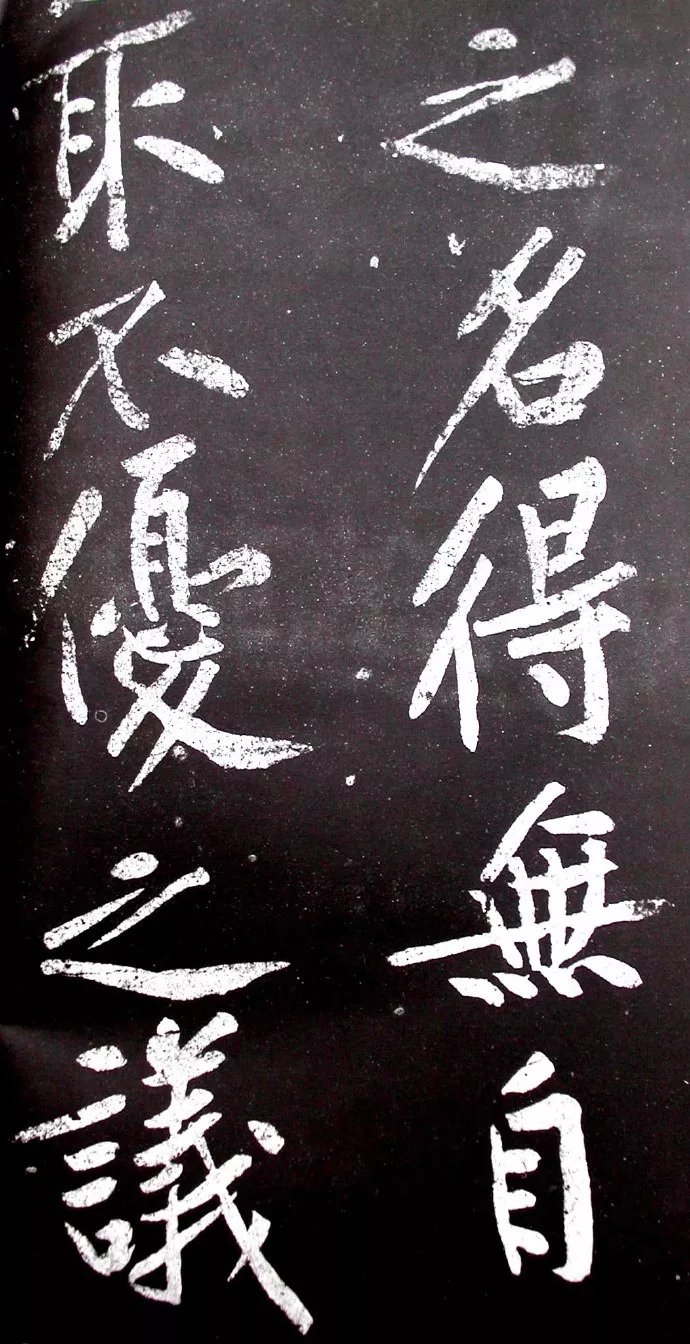 之名得無自
取不優之議